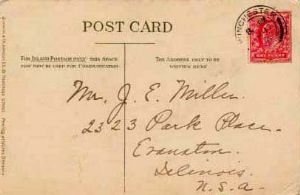 POST CARD
FOR INLAND POSTAGE ONLY THIS SPACE
MAY NOW BE USED FOR COMMUNICATION
THE ADDRESS ONLY TO BE
WRITTEN HERE
WINCHESTER
Mr. J. E. Miller
2323 Park Place.
Evanston
Illinois
U.S.A.